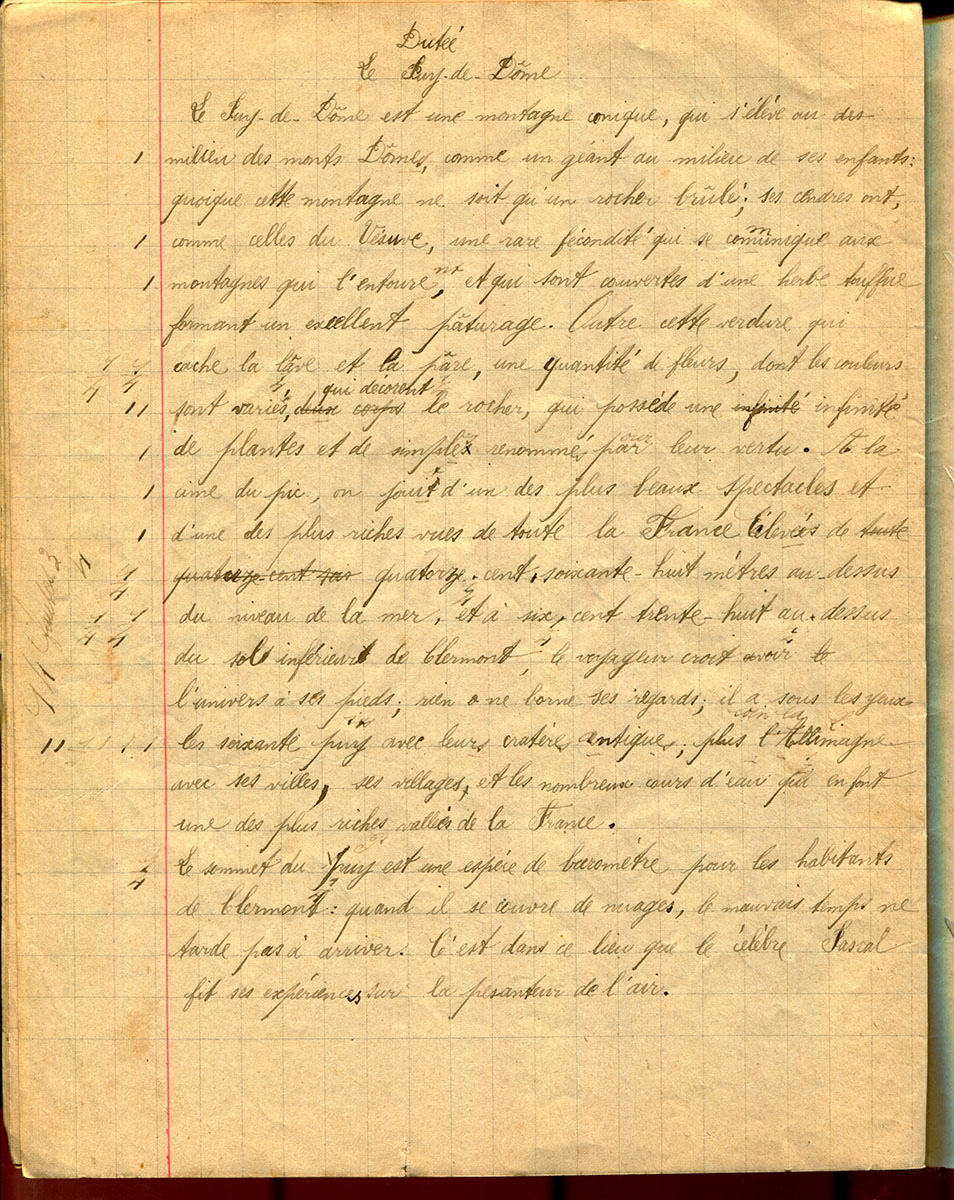 Dictée
Le Puy-de-Dôme
Le Puy-de-Dôme est une montagne conique, qui s'élève au des
1 milieu des monts Dômes, comme un géant au milieu de ses enfants:
quoique cette montagne ne soit qu'un rocher brûlé; ses cendres ont,
1 comme celles du Vésuve, une rare fécondité qui se communique aux
1 montagnes qui l'entourent, et qui sont couvertes d'une herbe touffue
formant un excellent pâturage. Outre cette verdure qui
cache la lave et la pâre, une quantité de fleurs, dont les couleurs
qui décorent
11 sont variés, deux corps le rocher, qui possède une infinité infinité
1 de plantes et de simples renommé, pour leur vertu. A la
1 cime du pic, on jouit d'un des plus beaux spectacles et
1 d'une des plus riches vues de toute la France Élevés de toute
quatorze-cent quatorze-cent, soixante-huit mètres au-dessus
du niveau de la mer, et à six, cent trente-huit au-dessus
du sol inférieur de Clermont, le voyageur croit avoir le
l'univers à ses pieds; rien ne borne ses regards; il a sous les yeux
11 1 1 1 les soixante puy avec leurs cratère antique; plus l'Allimagne
avec ses villes, ses villages, et les nombreux cours d'eau qui en font
une des plus riches vallées de la France.
Le sommet du puy est une espèce de baromètre pour les habitants
de Clermont: quand il se couvre de nuages, le mauvais temps ne
tarde pas à arriver. C'est dans ce lieu que le célèbre Pascal
fit ses expériences sur la pesanteur de l'air.